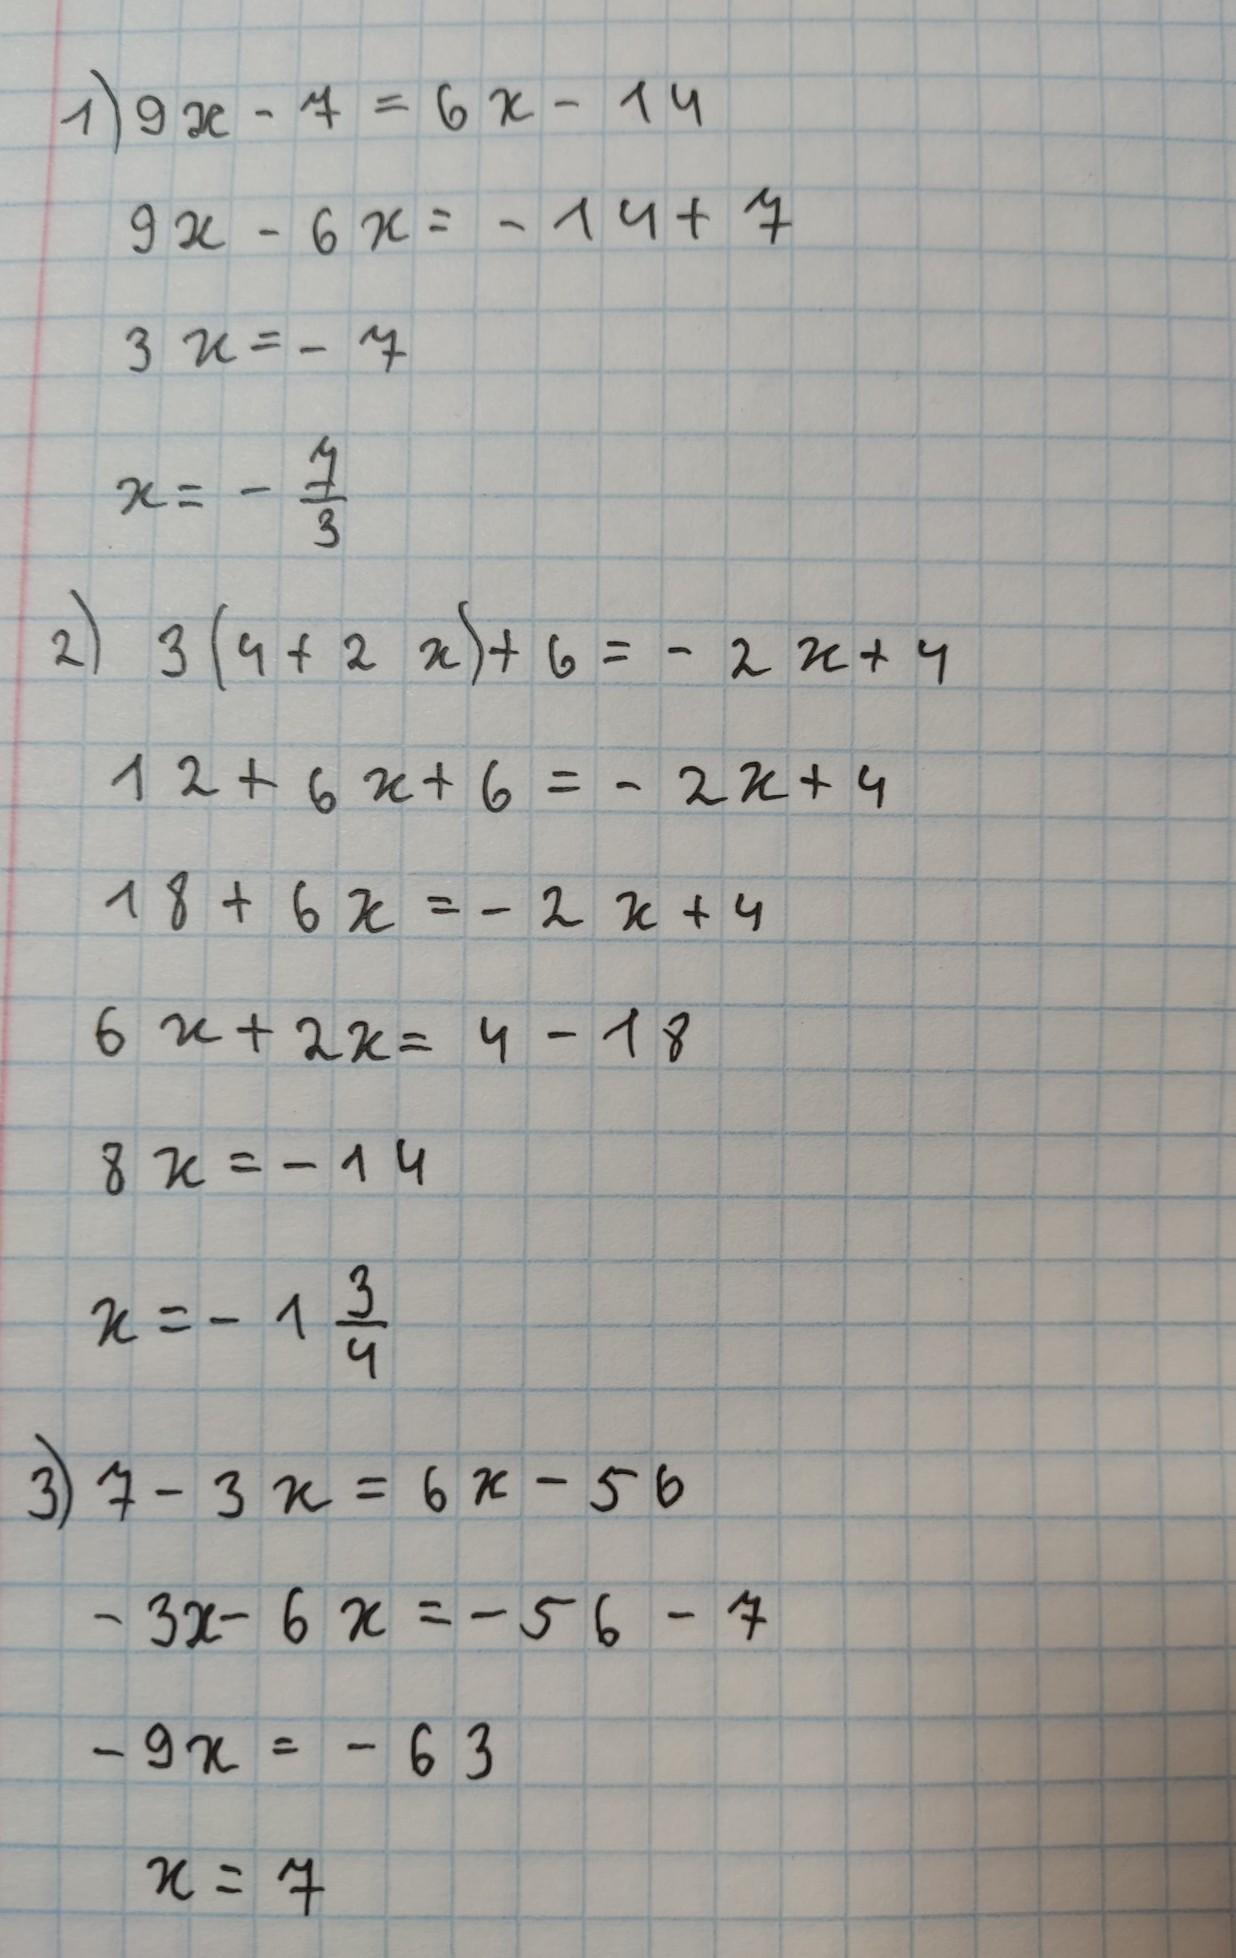 1) 9x - 7 = 6x - 14
9x - 6x = - 14 + 7
3x = - 7
x = - 7/3
2) 3(4 + 2x) + 6 = - 2x + 4
12 + 6x + 6 = - 2x + 4
18 + 6x = - 2x + 4
6x + 2x = 4 - 18
8x = - 14
x = - 1 3/4
3) 7 - 3x = 6x - 56
- 3x - 6x = - 56 - 7
- 9x = - 63
x = 7